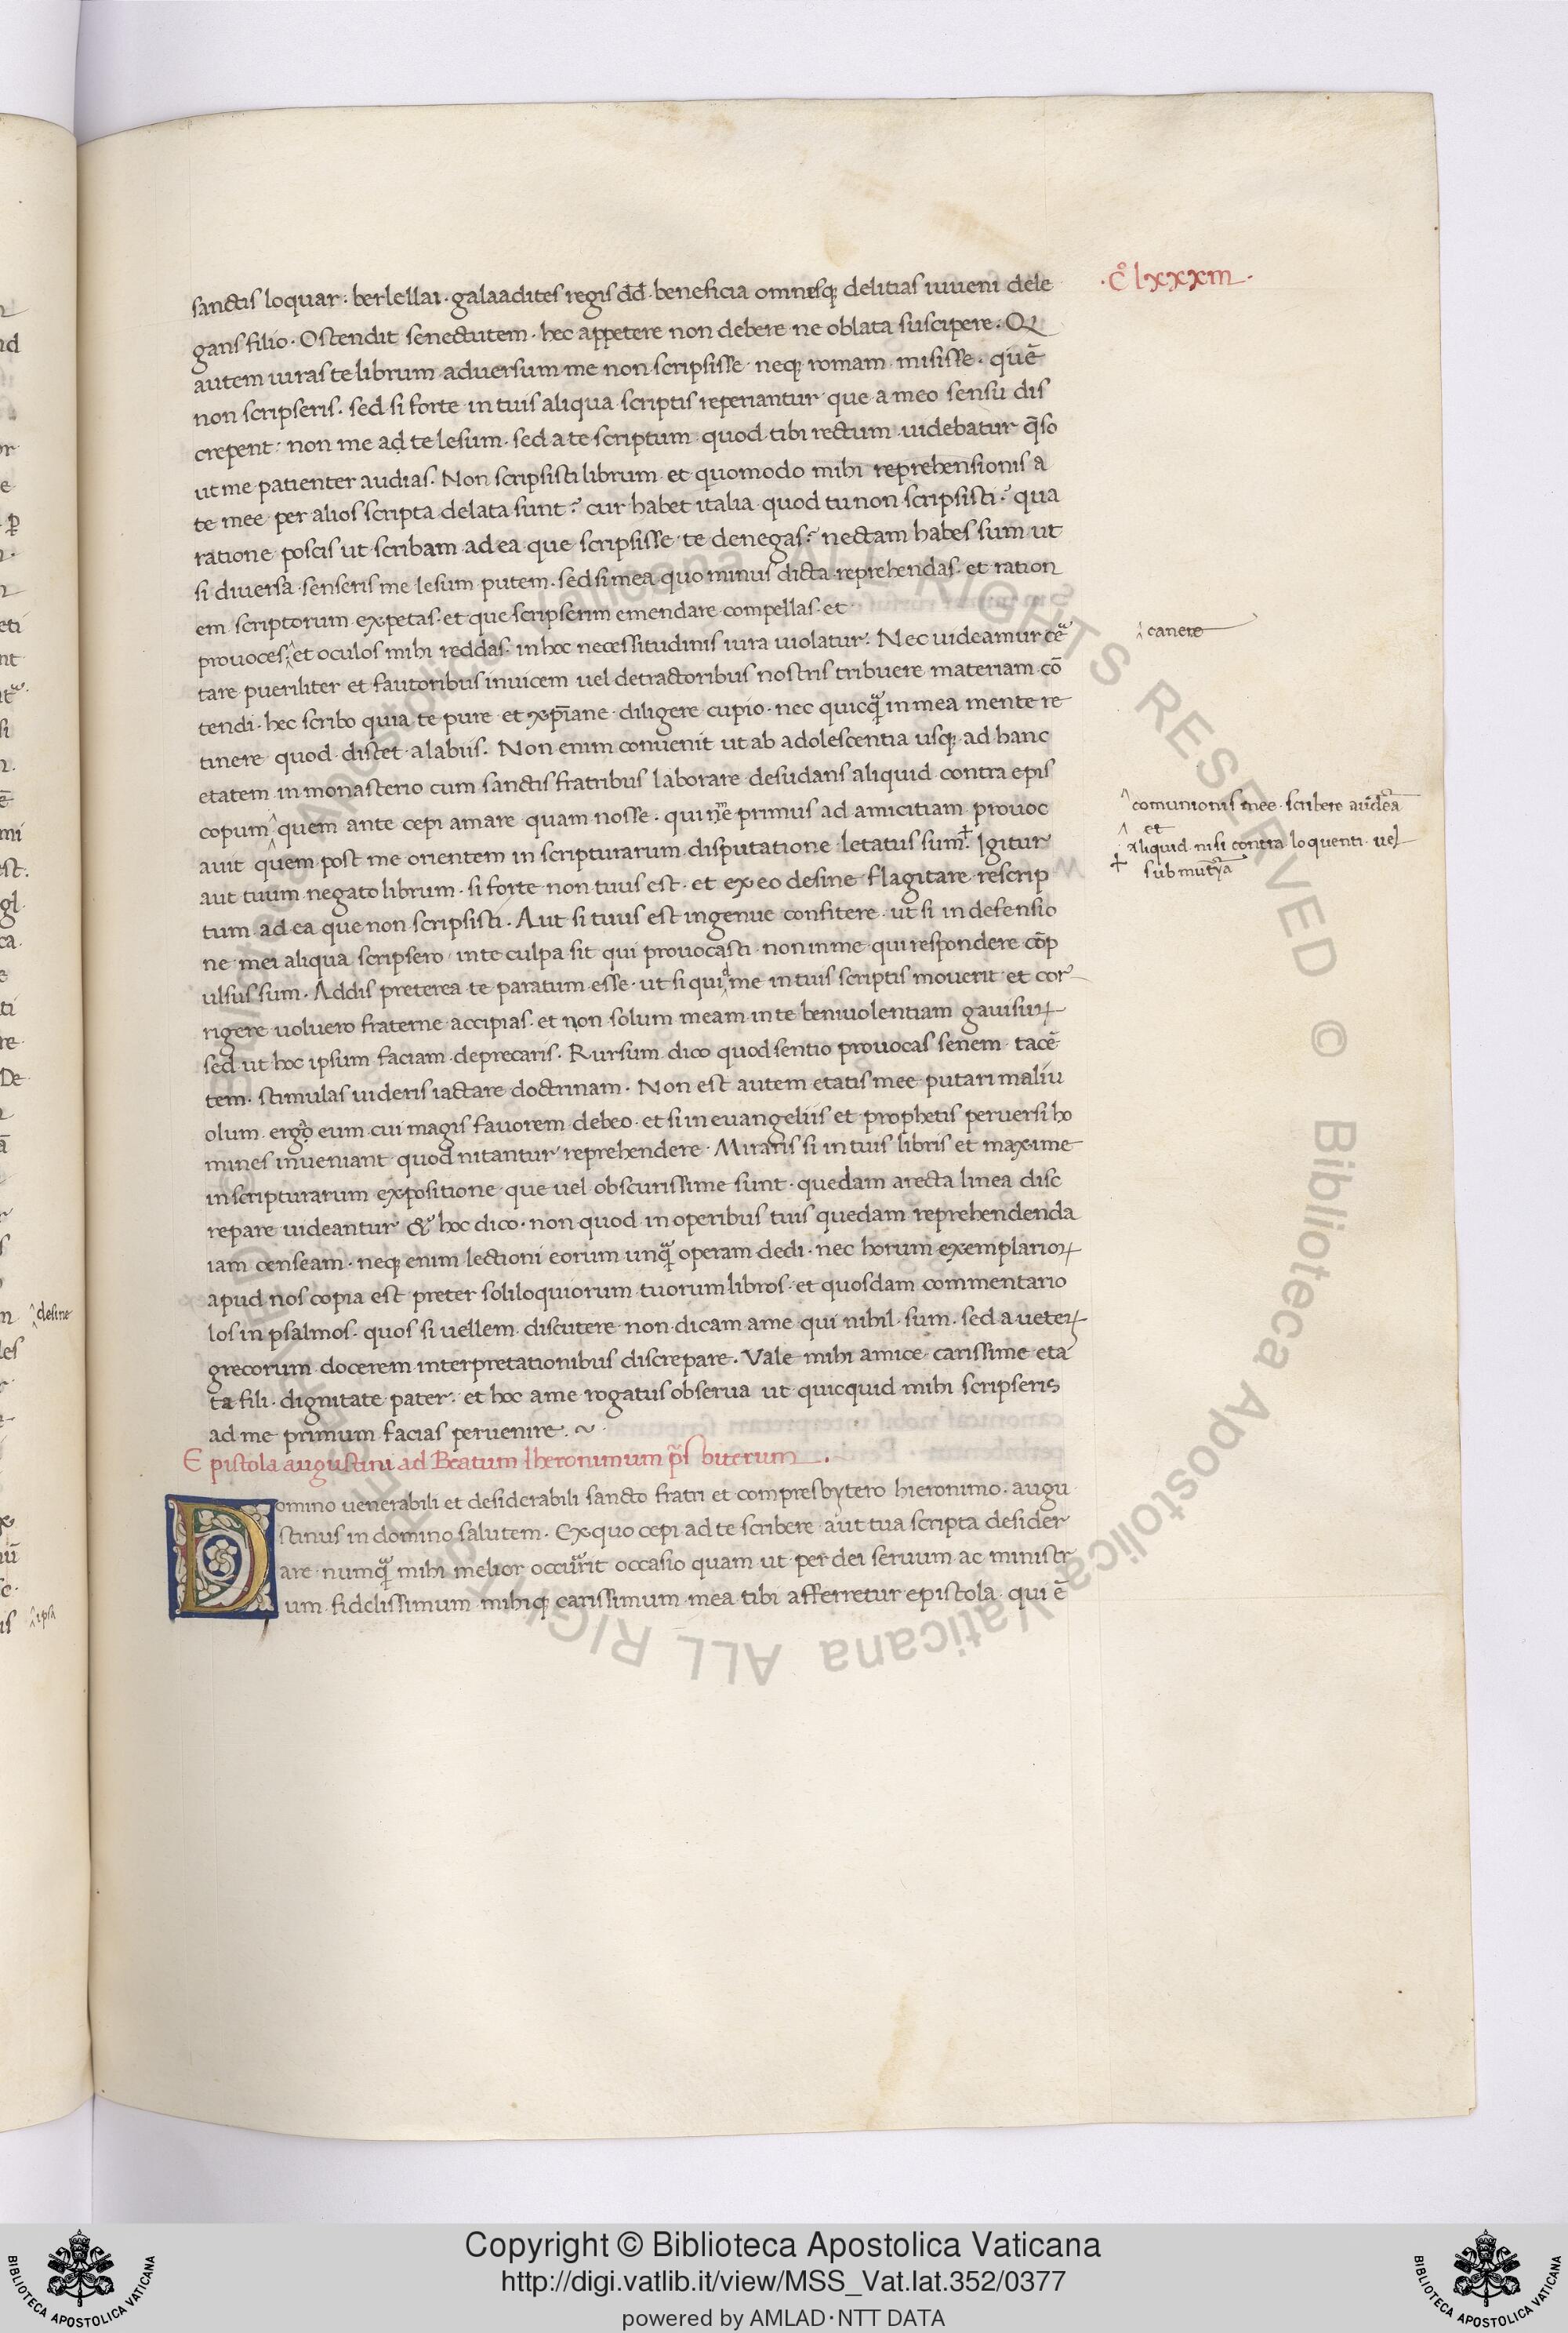 ·c̊ lxxxiii·
sanctis loquar : berlellai · galaadites regis dd̄ · beneficia omnesq; delitias iuueni dele
gans filio · Ostendit senectutem · hec appetere non debere ne oblata suscipere · Q
autem iuras te librum aduersum me non scripsisse · neq; romam · misisse · quē
non scripseris · sed si forte in tuis aliqua scriptis reperiantur que a meo sensu dis
crepent : non me ad te lesum · sed a te scriptum · quod tibi rectum uidebatur q̄so
ut me patienter audias · Non scripsisti librum et quomodo mihi reprehensionis a
te mee per alios scripta delata sunt ? cur habet italia quod tu non scripsisti ? qua
ratione poscis ut scribam ad ea que scripsisse te denegas ? nectam habes sum ut
si diuersa senseris me lesum putem · sed si mea quo minus dicta reprehendas · et ration
em scriptorum expetas · et que scripserim emendare compellas · et
provoces ‸ et oculos mihi reddas · in hoc necessitudinis iura uiolatur · Nec uideamur cē
‸ canere
tare pueriliter et fautoribus inuicem uel detractoribus nostris tribuere materiam cō
tendi · hec scribo quia te pure et xp̄iane diligere cupio · nec quicq̄ in mea mente re
tinere quod distet a labiis · Non enim conuenit ut ab adolescentia usq; ad hanc
etatem in monasterio cum sanctis fratribus laborare desudans aliquid contra epis
copum ‸ quem ante cepi amare quam nosse · qui me primus ad amicitiam prouoc
‸ comunionis mee · scribere audeā
‸ et
auit quem post me orientem in scripturarum disputatione letatus sum · Igitur
aliquid nisi contra loquenti uel
aut tuum negato librum · si forte non tuus est · et ex eo desine flagitare rescrip
tum ad ea que non scripsisti · Aut si tuus est ingenue confitere · ut si in defensio
ne mei aliqua scripsero in te culpa sit qui prouocasti non in me qui respondere cōp
ulsus sum · Addis preterea te paratum esse · ut si quid me in tuis scriptis mouerit et cor
rigere uoluero fraterne accipias · et non solum mea in te beniuolentiam gauisurꝝ
sed ut hoc ipsum faciam deprecaris · Rursum dico quod sentio prouocas senem tacē
tem · stimulas uideris iactare doctrinam · Non est autem etatis mee putari maliu
olum ergo eum cui magis fauorem debeo · et si in euangeliis et prophetis peruersi ho
mines inueniant quod nitantur reprehendere · Miraris si in tuis libris et maxime
in scripturarum expositione que uel obscurissime sunt · quedam a recta linea disc
repare uideantur & hoc dico · non quod in operibus tuis quedam reprehendenda
iam censeam · neq; enim lectioni eorum unq̄ operam dedi · nec horum exemplarioꝝ
apud nos copia est preter soliloquiorum tuorum libros · et quosdam commentario
los in psalmos · quos si uellem discutere non dicam a me qui nihil · sum · sed a ueteꝝ
grecorum docerem interpretationibus discrepare · Vale mihi amice carissime eta
ta fili · dignitate pater · et hoc a me rogatus obserua ut quicquid mihi scripseris
ad me primum facias peruenire · ~
Epistola augustini ad Beatum Iheronimum p̄sbiterum ·
Domino uenerabili et desiderabili sancto fratri et compresbytero hieronimo · augu
stinus in domino salutem · Ex quo cepi ad te scribere aut tua scripta desider
are numq̄ mihi melior occurrit occasio quam ut per dei seruum ac ministr
um fidelissimum mihiq; carissimum mea tibi afferretur epistola · qui ē
‸ desine
‸ ipsa
Copyright © Biblioteca Apostolica Vaticana
http://digi.vatlib.it/view/MSS_Vat.lat.352/0377
powered by AMLAD·NTT DATA
BIBLIOTECA APOSTOLICA VATICANA
BIBLIOTECA APOSTOLICA VATICANA